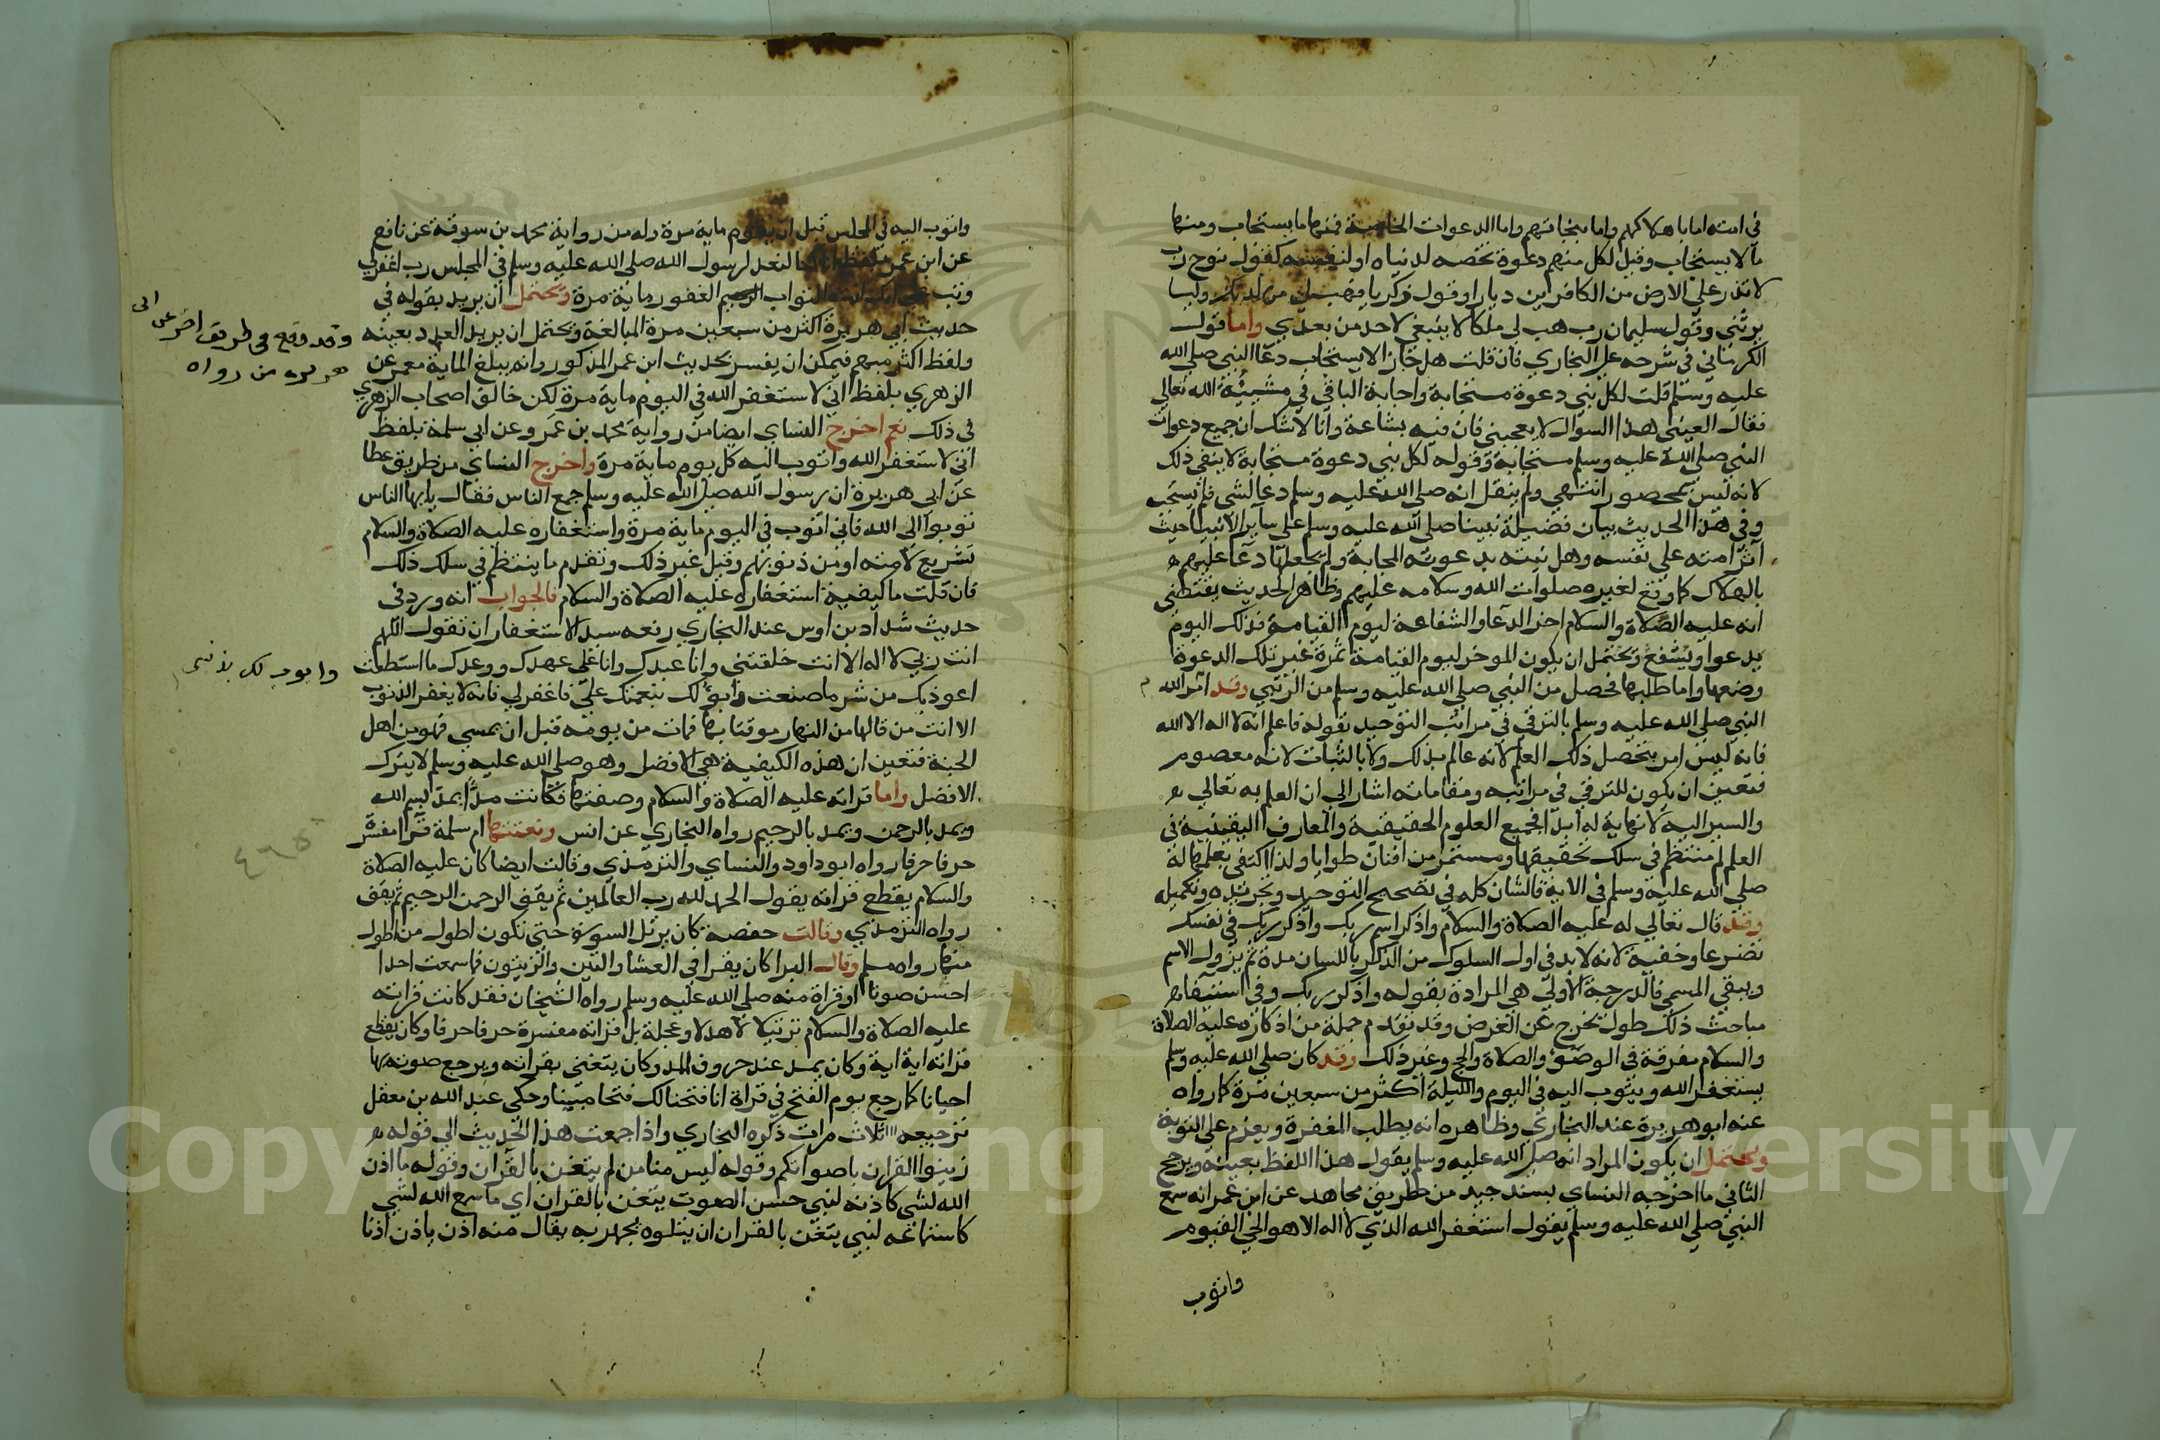 في امته اما باهلاكهم واما بنجاتهم واما الدعوات الخاصة فمنها ما يستجاب ومنها
ما لا يستجاب وقيل لكل منهم دعوة تخصه لدنياه او لنفسه كقول نوح رب
لا تذر على الارض من الكافرين ديارا وقول زكريا فهب لي من لدنك وليا
يرثني وقول سليمان رب هب لي ملكا لا ينبغي لاحد من بعدي واما قول
الكرماني في شرحه على البخاري فان قلت هل جاز الا يستجاب دعا النبي صلى الله
عليه وسلم قلت لكل نبي دعوة مستجابة واجابة الباقي في مشيئة الله تعالى
فقال العيني هذا السوال لا يعجبني فان فيه بشاعة وانا لا اشك ان جميع دعوات
النبي صلى الله عليه وسلم مستجابة وقوله لكل نبي دعوة مستجابة لا ينفي ذلك
لانه ليس بمحصور انتهى ولم ينقل انه صلى الله عليه وسلم دعا لشي فلم يستجب
وفي هذا الحديث بيان فضيلة نبينا صلى الله عليه وسلم على ساير الانبيا حيث
آثر امته على نفسه وهل بيته بدعوته المجابة ولم يجعلها دعا عليهم
بالهلاك كما وقع لغيره صلوات الله وسلامه عليهم وظاهر الحديث يقتضي
انه عليه الصلاة والسلام اخر الدعا والشفاعة ليوم القيامة فذلك اليوم
يدعوا ويشفع ويحتمل ان يكون الموخر ليوم القيامة ثمرة غير تلك الدعوة
وضعها واما طلبها فحصل من النبي صلى الله عليه وسلم من الرتبي وقد امر الله
النبي صلى الله عليه وسلم بالترقي في مراتب التوحيد بقوله فاعلم انه لا اله الا الله
فانه ليس امر بتحصيل ذلك العلم لانه عالم بذلك ولا بالثبات لانه معصوم
فتعين ان يكون للترقي في مراتبه ومقاماته اشار الى ان العلم به تعالى
والسير اليه لا نهاية له ابدا فجميع العلوم الحقيقية والمعارف اليقينية في
العلم منتظم في سلك تحقيقها ومستمر من افنان طوابا ولذا اكتفى بعلمها له
صلى الله عليه وسلم في الاية فالشان كله في تصحيح التوحيد وتجريده وتكميله
وقد قال تعالى له عليه الصلاة والسلام واذكر اسم ربك واذكر ربك في نفسك
تضرعا وخفية لانه لا بد في اول السلوك من الذكر باللسان مدة ثم يزول الاسم
ويبقي المسمي فالدرجة الاولى هي المرادة بقوله واذكر ربك وفي استيفاء
مباحث ذلك طول يخرج عن الغرض وقد تقدم جملة من اذكاره عليه الصلاة
والسلام مفرقة في الوضوء والصلاة والحج وغير ذلك وقد كان صلى الله عليه وسلم
يستغفر الله ويتوب اليه في اليوم والليلة اكثر من سبعين مرة كما رواه
عنه ابو هريرة عند البخاري وظاهره انه يطلب المغفرة ويعزم على التوبة
ويحتمل ان يكون المراد انه صلى الله عليه وسلم يقول هذا اللفظ بعينه ويرجح
الثاني ما اخرجه النساي بسند جيد من طريق مجاهد عن ابن عمر انه سمع
النبي صلى الله عليه وسلم يقول استغفر الله الذي لا اله الا هو الحي القيوم
واتوب
واتوب اليه في المجلس قبل ان يقوم ماية مرة وله من رواية محمد بن سوقة عن نافع
عن ابن عمر بلفظ انا كنا لنعد لرسول الله صلى الله عليه وسلم في المجلس رب اغفر لي
وتب علي انك انت التواب الرحيم الغفور ماية مرة ويحتمل ان يريد بقوله في
حديث ابي هريرة اكثر من سبعين مرة المبالغة ويحتمل ان يريد العدد بعينه
ولفظ اكثر مبهم فيمكن ان يفسر بحديث ابن عمر المذكور وانه يبلغ الماية معمر عن
وقد وقع في طريق اخر عن ابي
هريرة من رواه
الزهري بلفظ اني لاستغفر الله في اليوم ماية مرة لكن خالف اصحاب الزهري
في ذلك نعم اخرج النساي ايضا من رواية محمد بن عمرو عن ابي سلمة بلفظ
اني لاستغفر الله واتوب اليه كل يوم ماية مرة واخرج النساي من طريق عطا
عن ابي هريرة ان رسول الله صلى الله عليه وسلم جمع الناس فقال يا ايها الناس
توبوا الى الله فاني اتوب في اليوم ماية مرة واستغفاره عليه الصلاة والسلام
تشريع لامته او من ذنوبهم وقيل غير ذلك وتقدم ما ينتظم في سلك ذلك
فان قلت ما كيفية استغفاره عليه الصلاة والسلام فالجواب انه ورد في
حديث شداد بن اوس عند البخاري رفعه سيد الاستغفار ان تقول اللهم
انت ربي لا اله الا انت خلقتني وانا عبدك وانا على عهدك ووعدك ما استطعت
وابوء لك بذنبي
اعوذ بك من شر ما صنعت وابوء لك بنعمتك علي فاغفر لي فانه لا يغفر الذنوب
الا انت من قالها من النهار موقنا بها فمات من يومه قبل ان يمسي فهو من اهل
الجنة فتعين ان هذه الكيفية هي الافضل وهو صلى الله عليه وسلم لا يترك
الافضل واما قراته عليه الصلاة والسلام وصفتها فكانت مدا يمد ببسم الله
ويمد بالرحمن ويمد بالرحيم رواه البخاري عن انس ونعتتها ام سلمة قرا مفسرة
حرفا حرفا رواه ابو داود والنساي والترمذي وقالت ايضا كان عليه الصلاة
والسلام يقطع قراته يقول الحمد لله رب العالمين ثم يقف الرحمن الرحيم ثم يقف
رواه الترمذي وقالت حفصة كان يرتل السورة حتى تكون اطول من اطول
منها رواه مسلم وقال البرا كان يقرا في العشا والتين والزيتون فما سمعت احدا
احسن صوتا او قراة منه صلى الله عليه وسلم رواه الشيخان فقد كانت قراته
عليه الصلاة والسلام ترتيلا لا هذا ولا عجلة بل قراته مفسرة حرفا حرفا وكان يقطع
قراته اية اية وكان يمد عند حروف المد وكان يتغنى بقراته ويرجع صوته بها
احيانا كما رجع يوم الفتح في قراة انا فتحنا لك فتحا مبينا وحكى عبد الله بن مغفل
ترجيعه ااا ثلاث مرات ذكره البخاري واذا جمعت هذا الحديث الى قوله
زينوا القران باصواتكم وقوله ليس منا من لم يتغن بالقران وقوله ما اذن
الله لشي كاذنه لنبي حسن الصوت يتغن بالقران اي ما سمع الله لشي
كاستماعه لنبي يتغن بالقران ان يتلوه يجهر به يقال منه اذن ياذن اذنا
Copyright © King Saud University